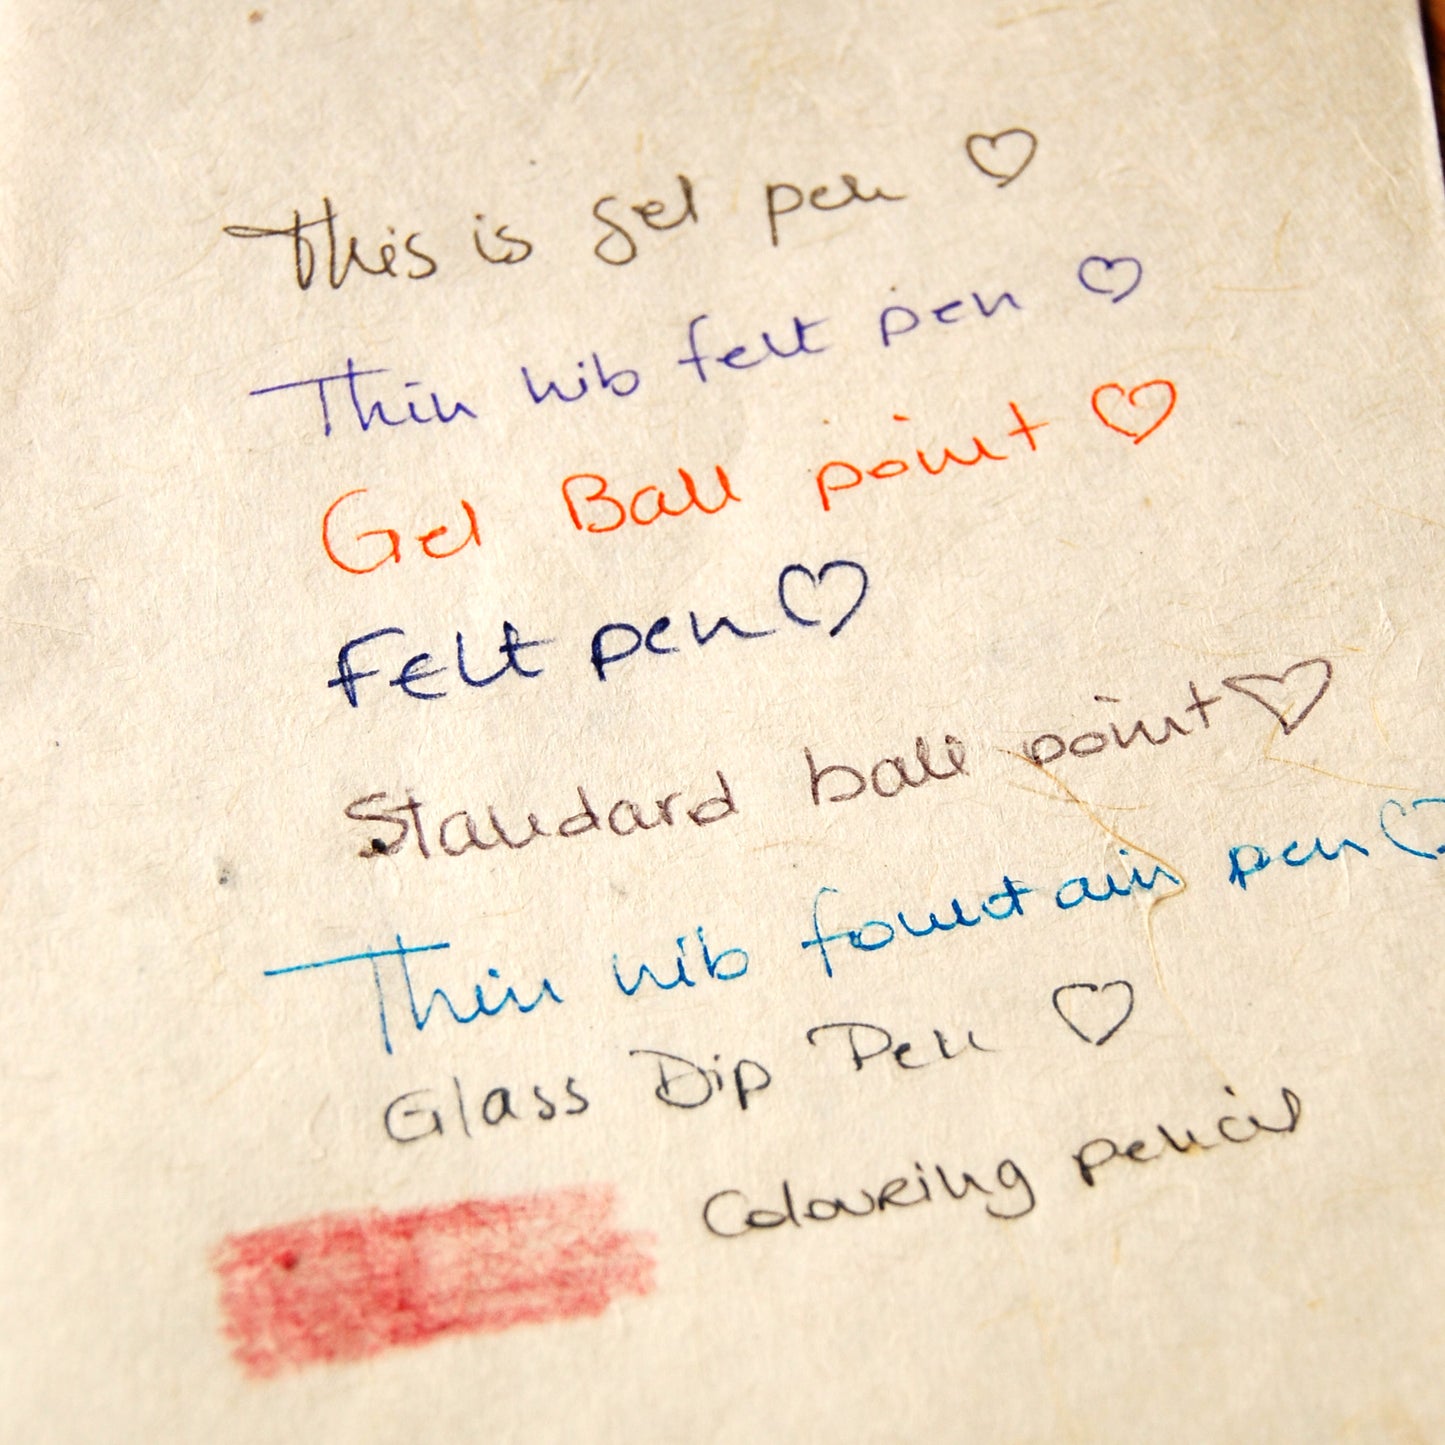 This is gel pen ♡
Thin nib felt pen ♡
Gel Ball point ♡
Felt pen ♡
Standard ball point ♡
Thin nib fountain pen ♡
Glass Dip Pen ♡
Colouring pencil